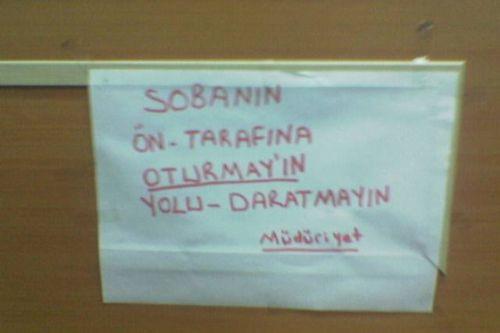 SOBANIN
ÖN-TARAFINA
OTURMAY'IN
YOLU-DARATMAYIN
Müdüriyet